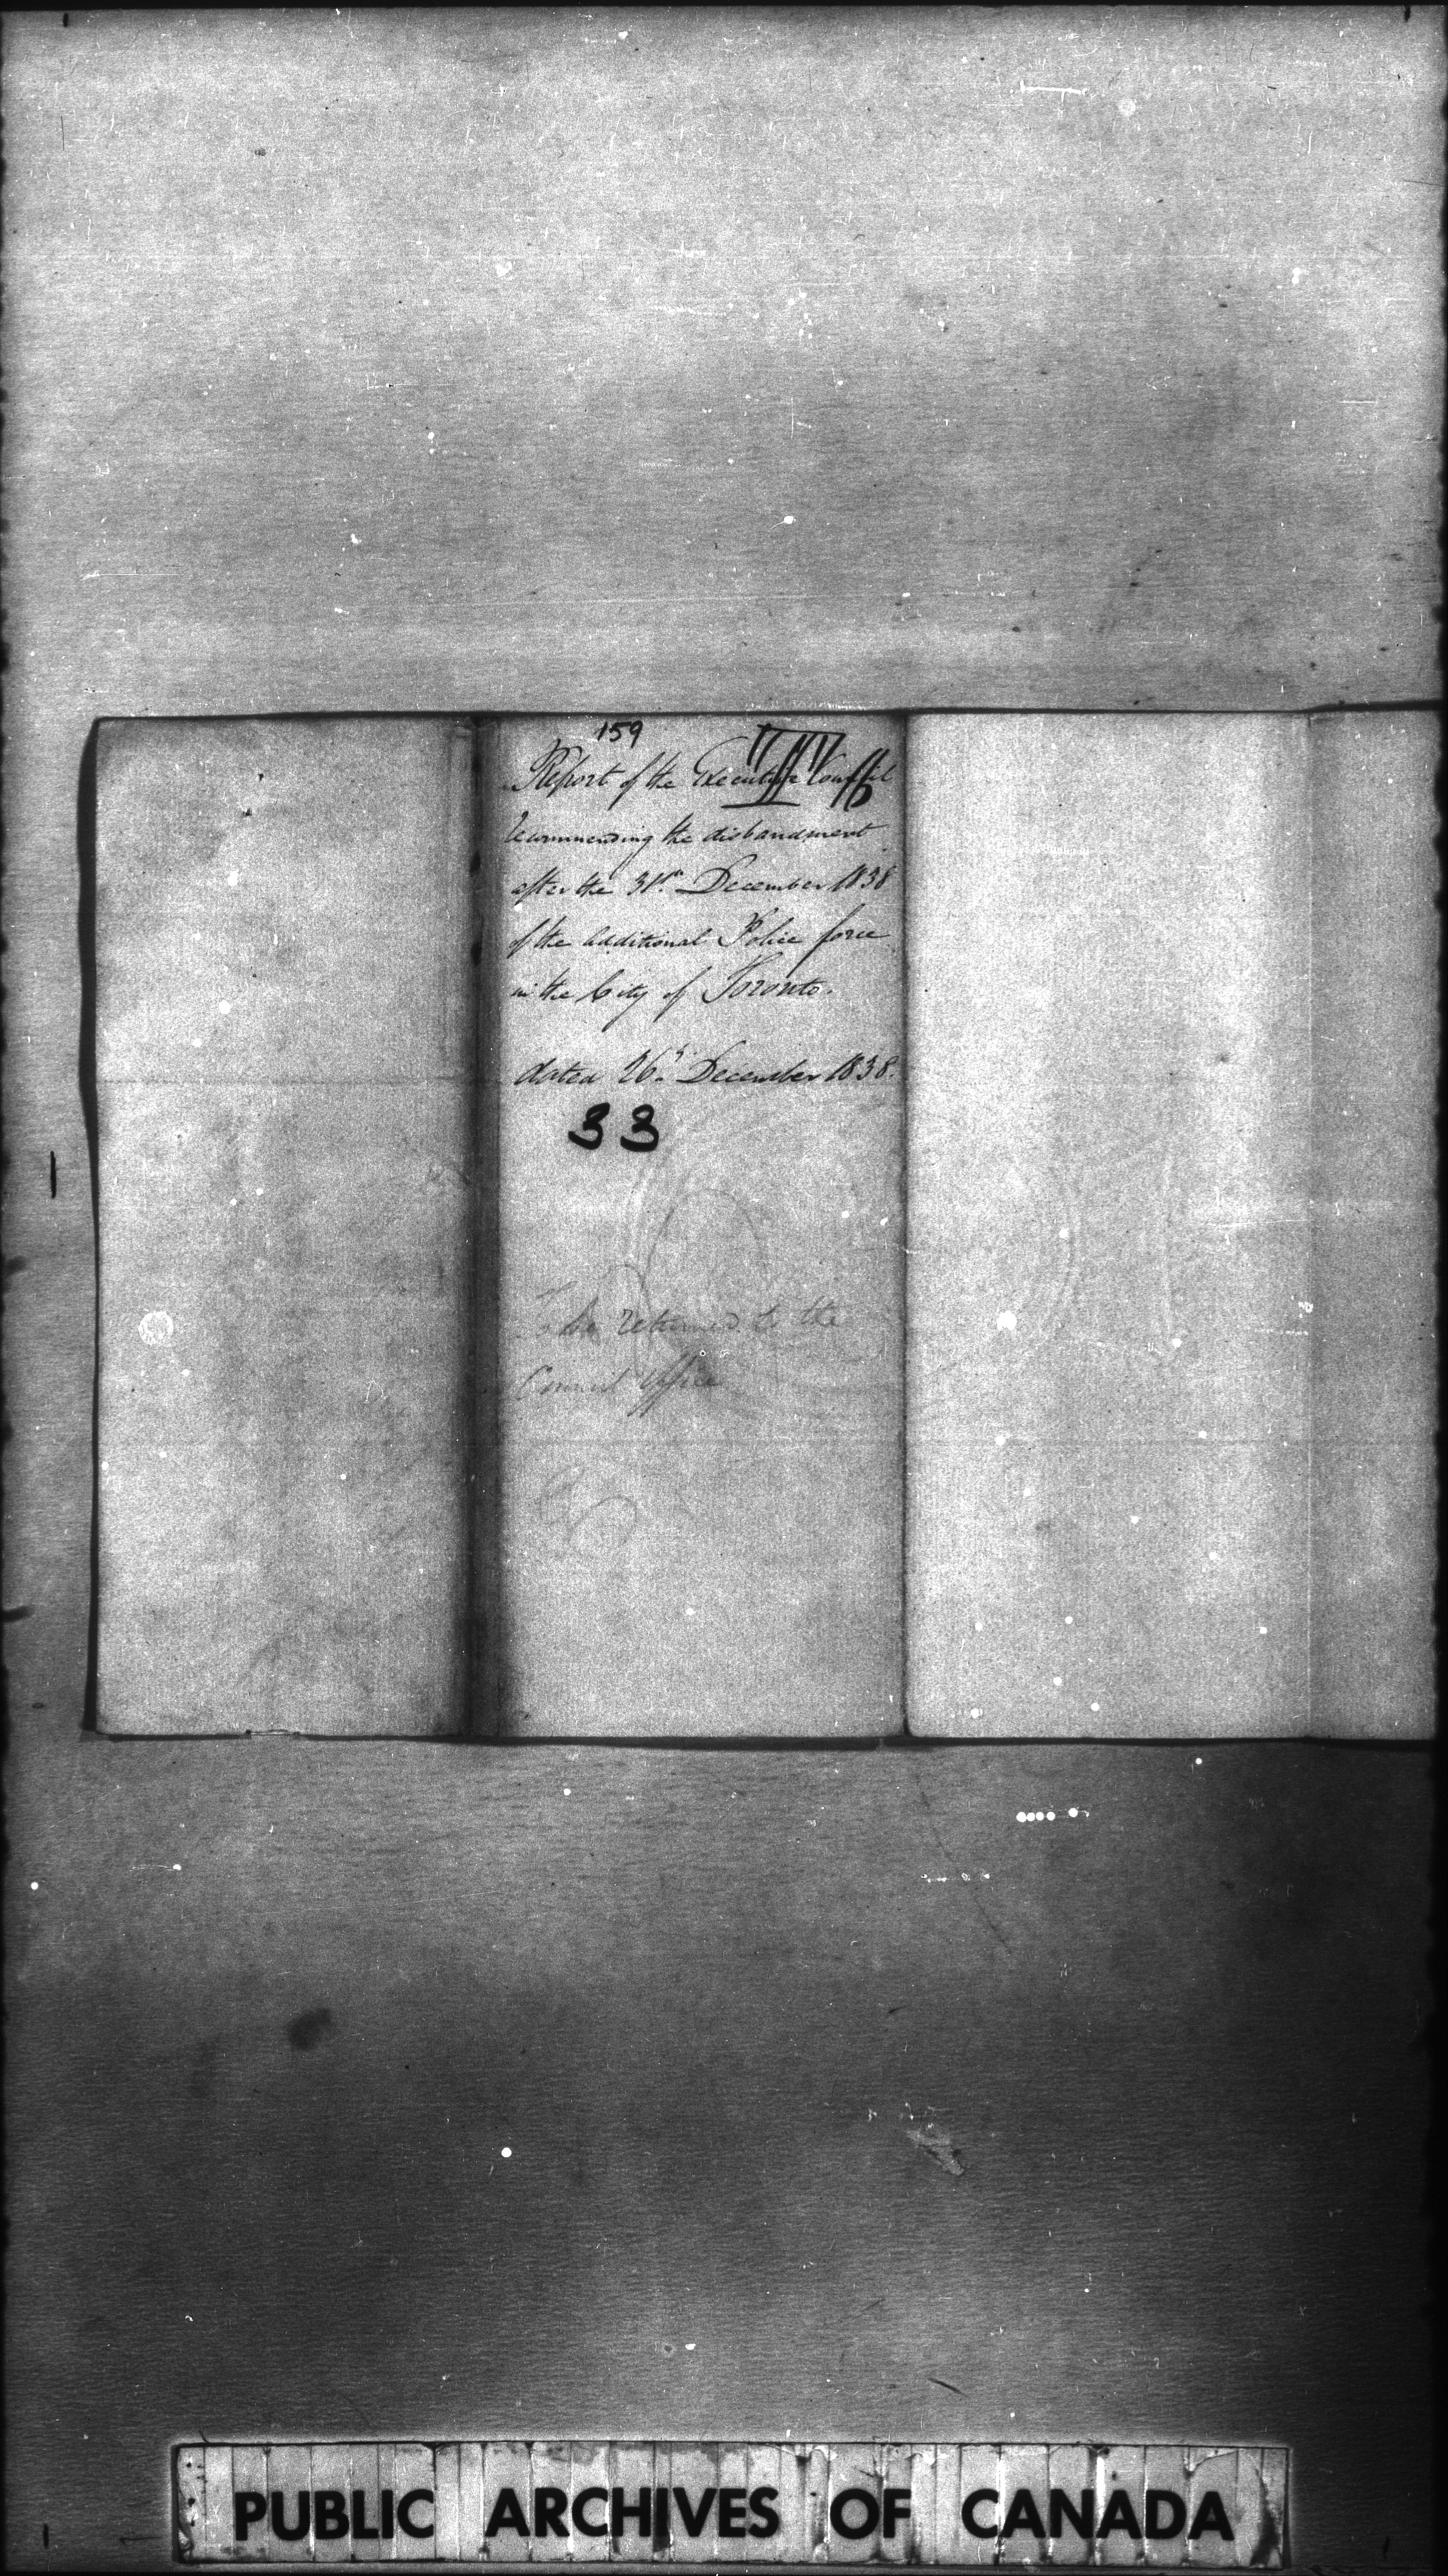 159
Report of the Executive Council
recommending the disbandment
after the 31st. December 1838
of the additional Police force
in the City of Toronto.
dated 26th. December 1838.
33
To be returned to the
Council Office
PUBLIC ARCHIVES OF CANADA